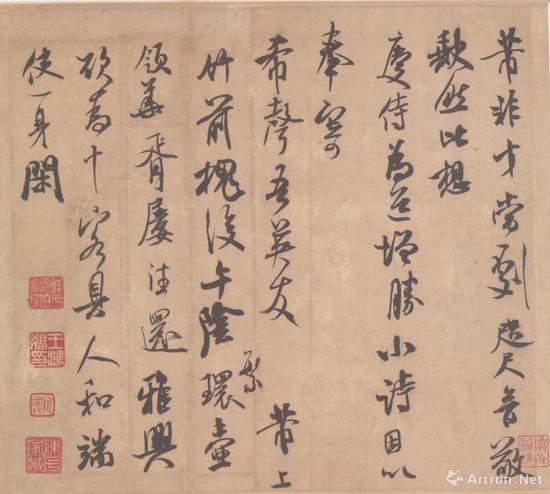 芾非才當劇咫尺音敬
缺然比想
慶侍為道增勝小詩因以
奉寄
希聲吾英友 芾上
竹前槐後午陰繁環壺
領華胥屢往還雅興
欲為十客具人和端
使一身閑
Artron.Net